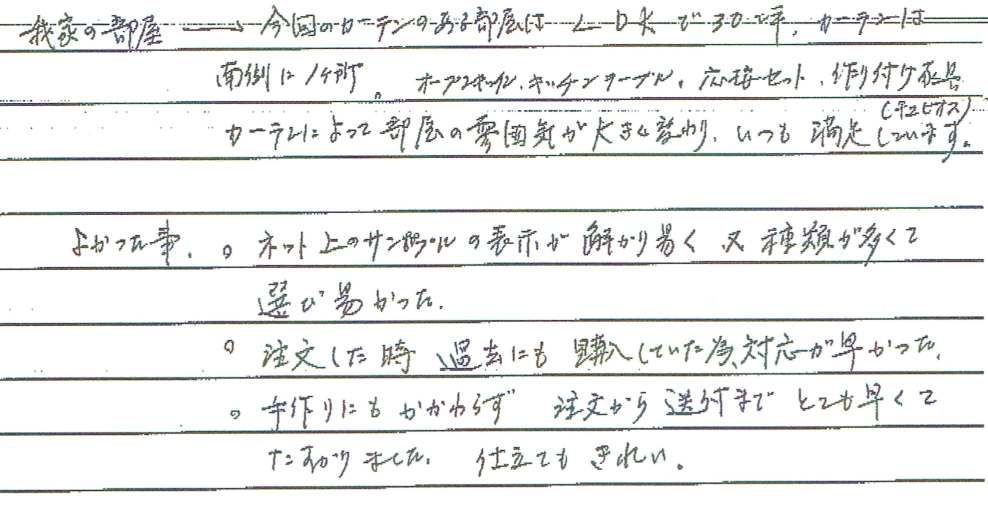 我家の部屋 → 今回のカーテンのある部屋は LDKで30坪、カーテンは
南側に1ヶ所。オープンキッチン、キッチンテーブル、応接セット、作り付け家具
(チェビオス)
カーテンによって部屋の雰囲気が大きく変わり、いつも満足しています。
よかった事、。ネット上のサンプルの表示が解かり易く 又 種類が多くて
選び易かった。
。注文した時 過去にも購入していた為、対応が早かった。
。手作りにもかかわらず 注文から送付まで とても早くて
たすかりました。 仕立ても きれい。